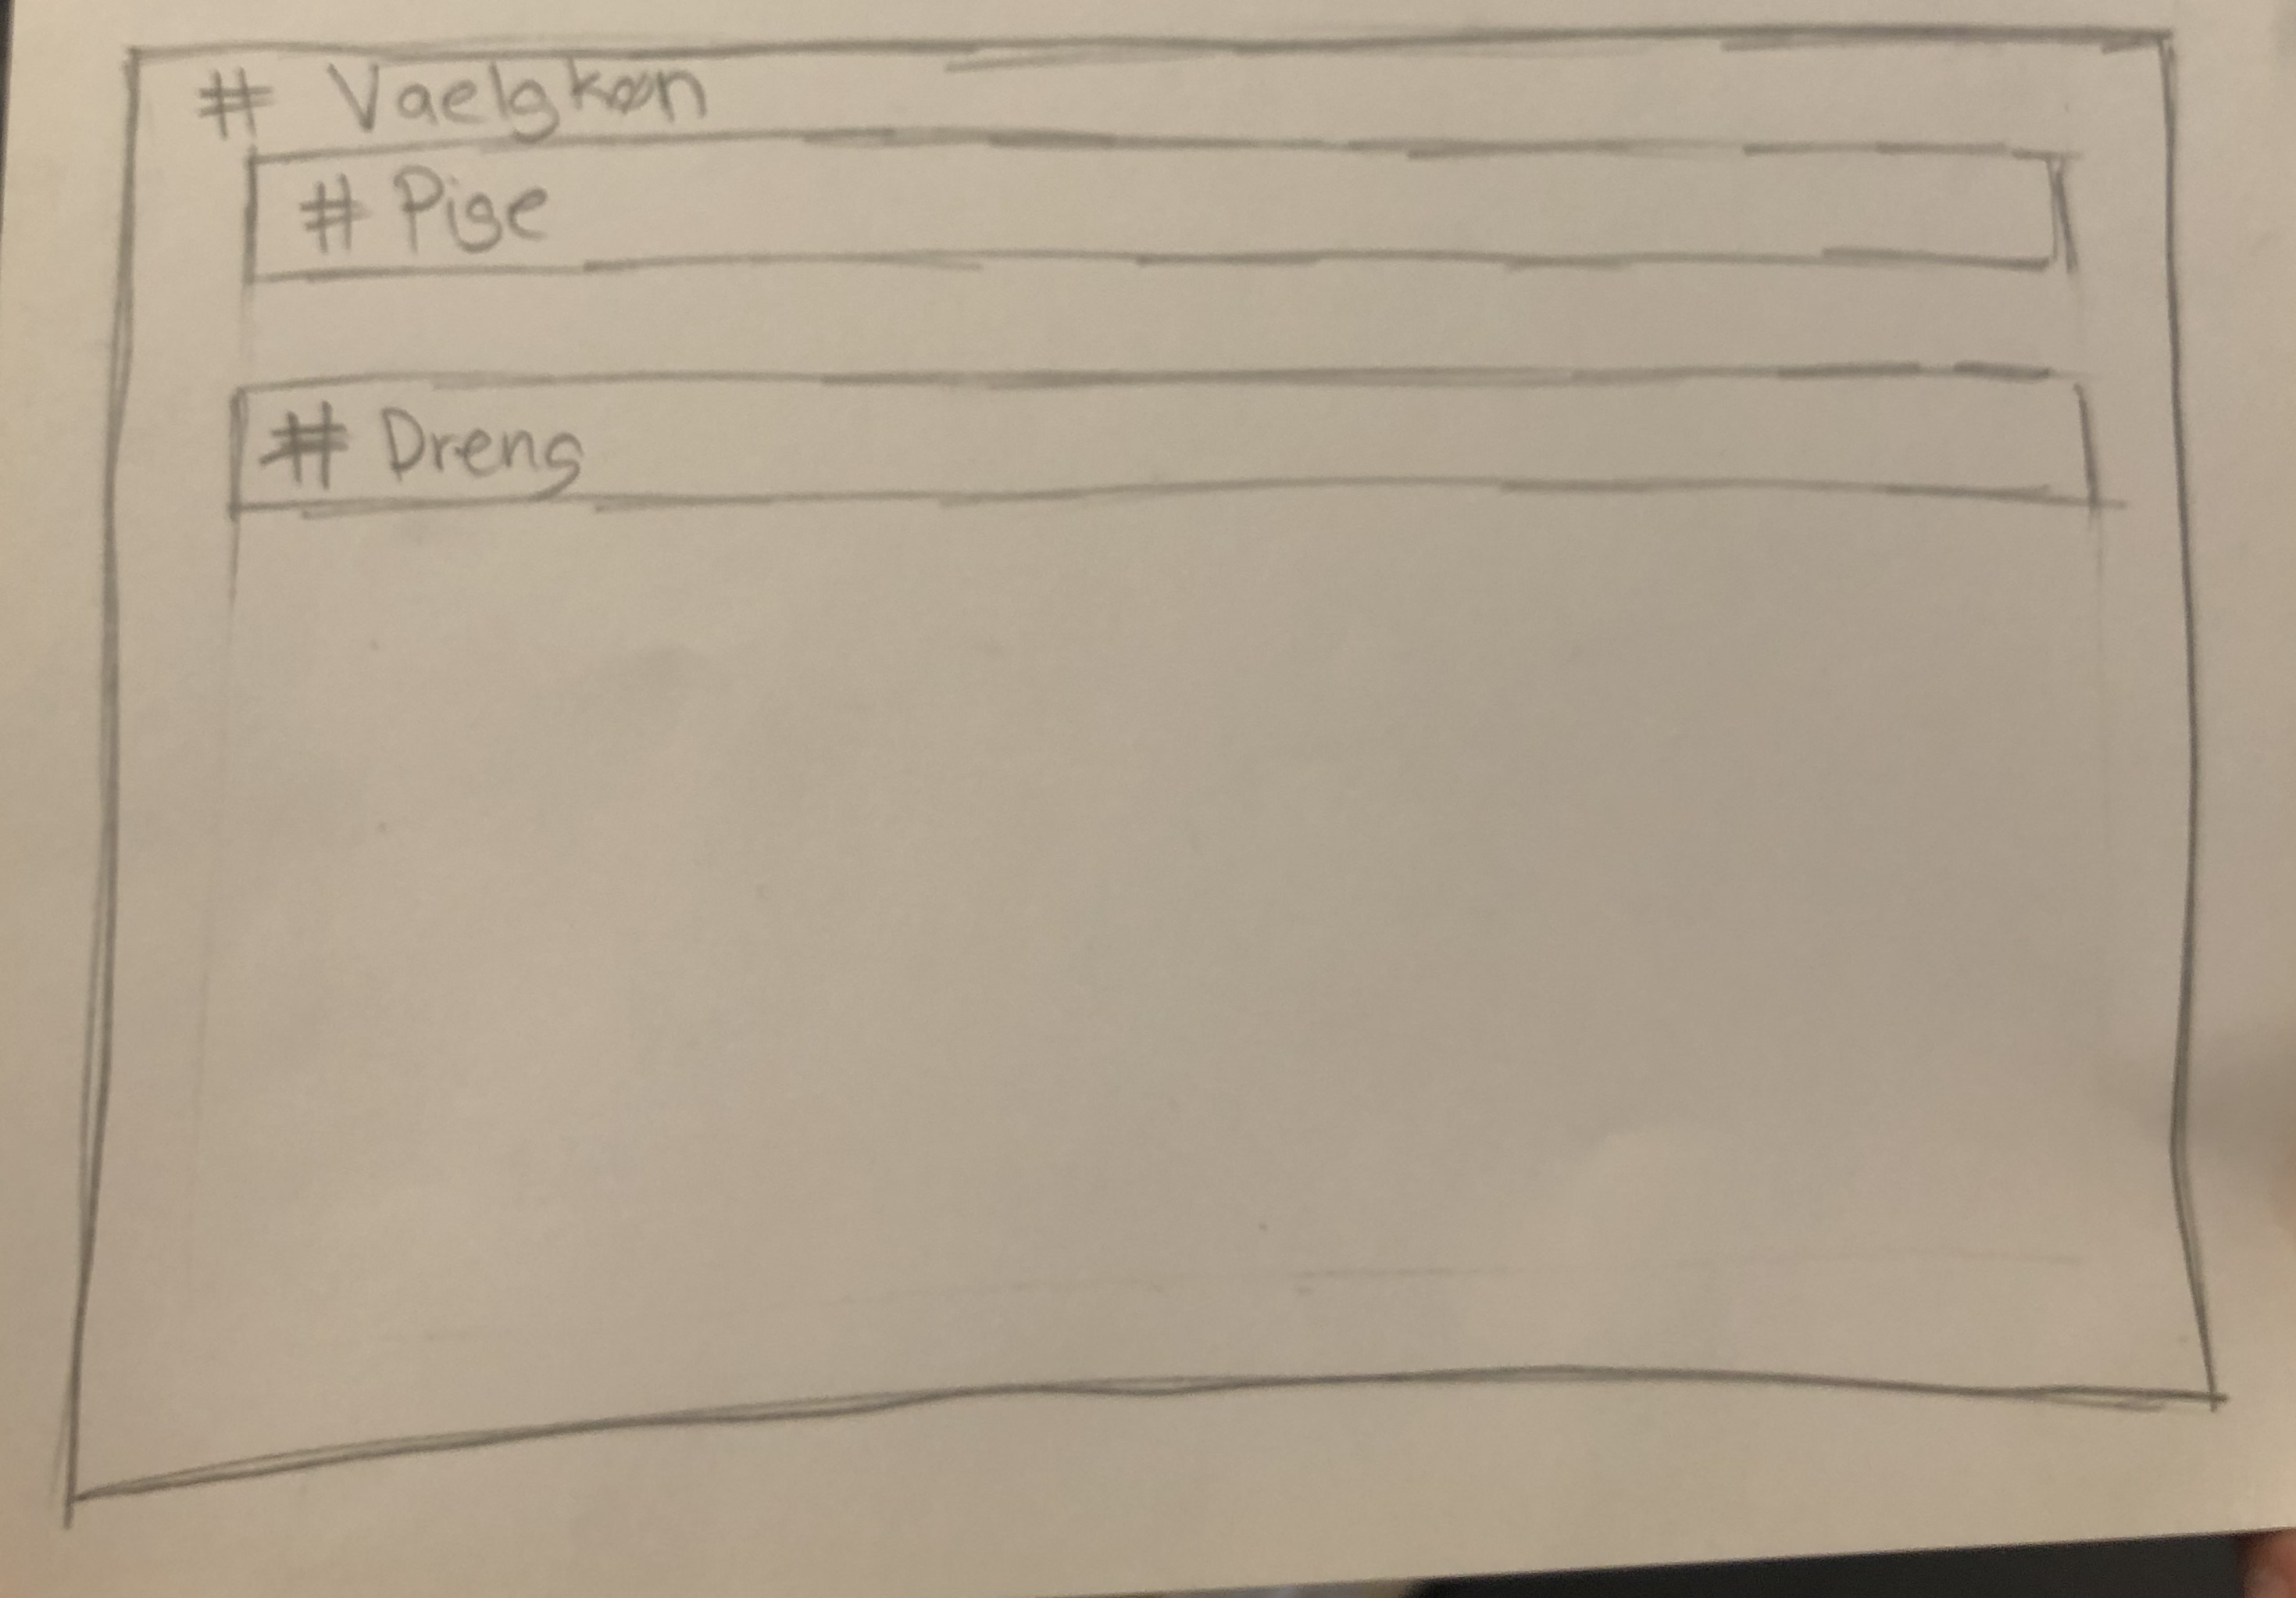 # Vaelg køn
# Pige
# Dreng